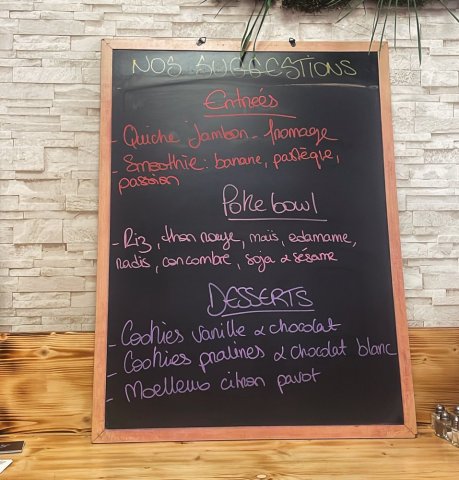 NOS SUGGESTIONS
Entrées
- Quiche Jambon - fromage
- Smoothie : banane, pastèque,
passion
Poke bowl
- Riz, thon rouge, maïs, edamame,
radis, concombre, soja & sésame
DESSERTS
- Cookies vanille & chocolat
- Cookies pralines & chocolat blanc
- Moelleux citron pavot